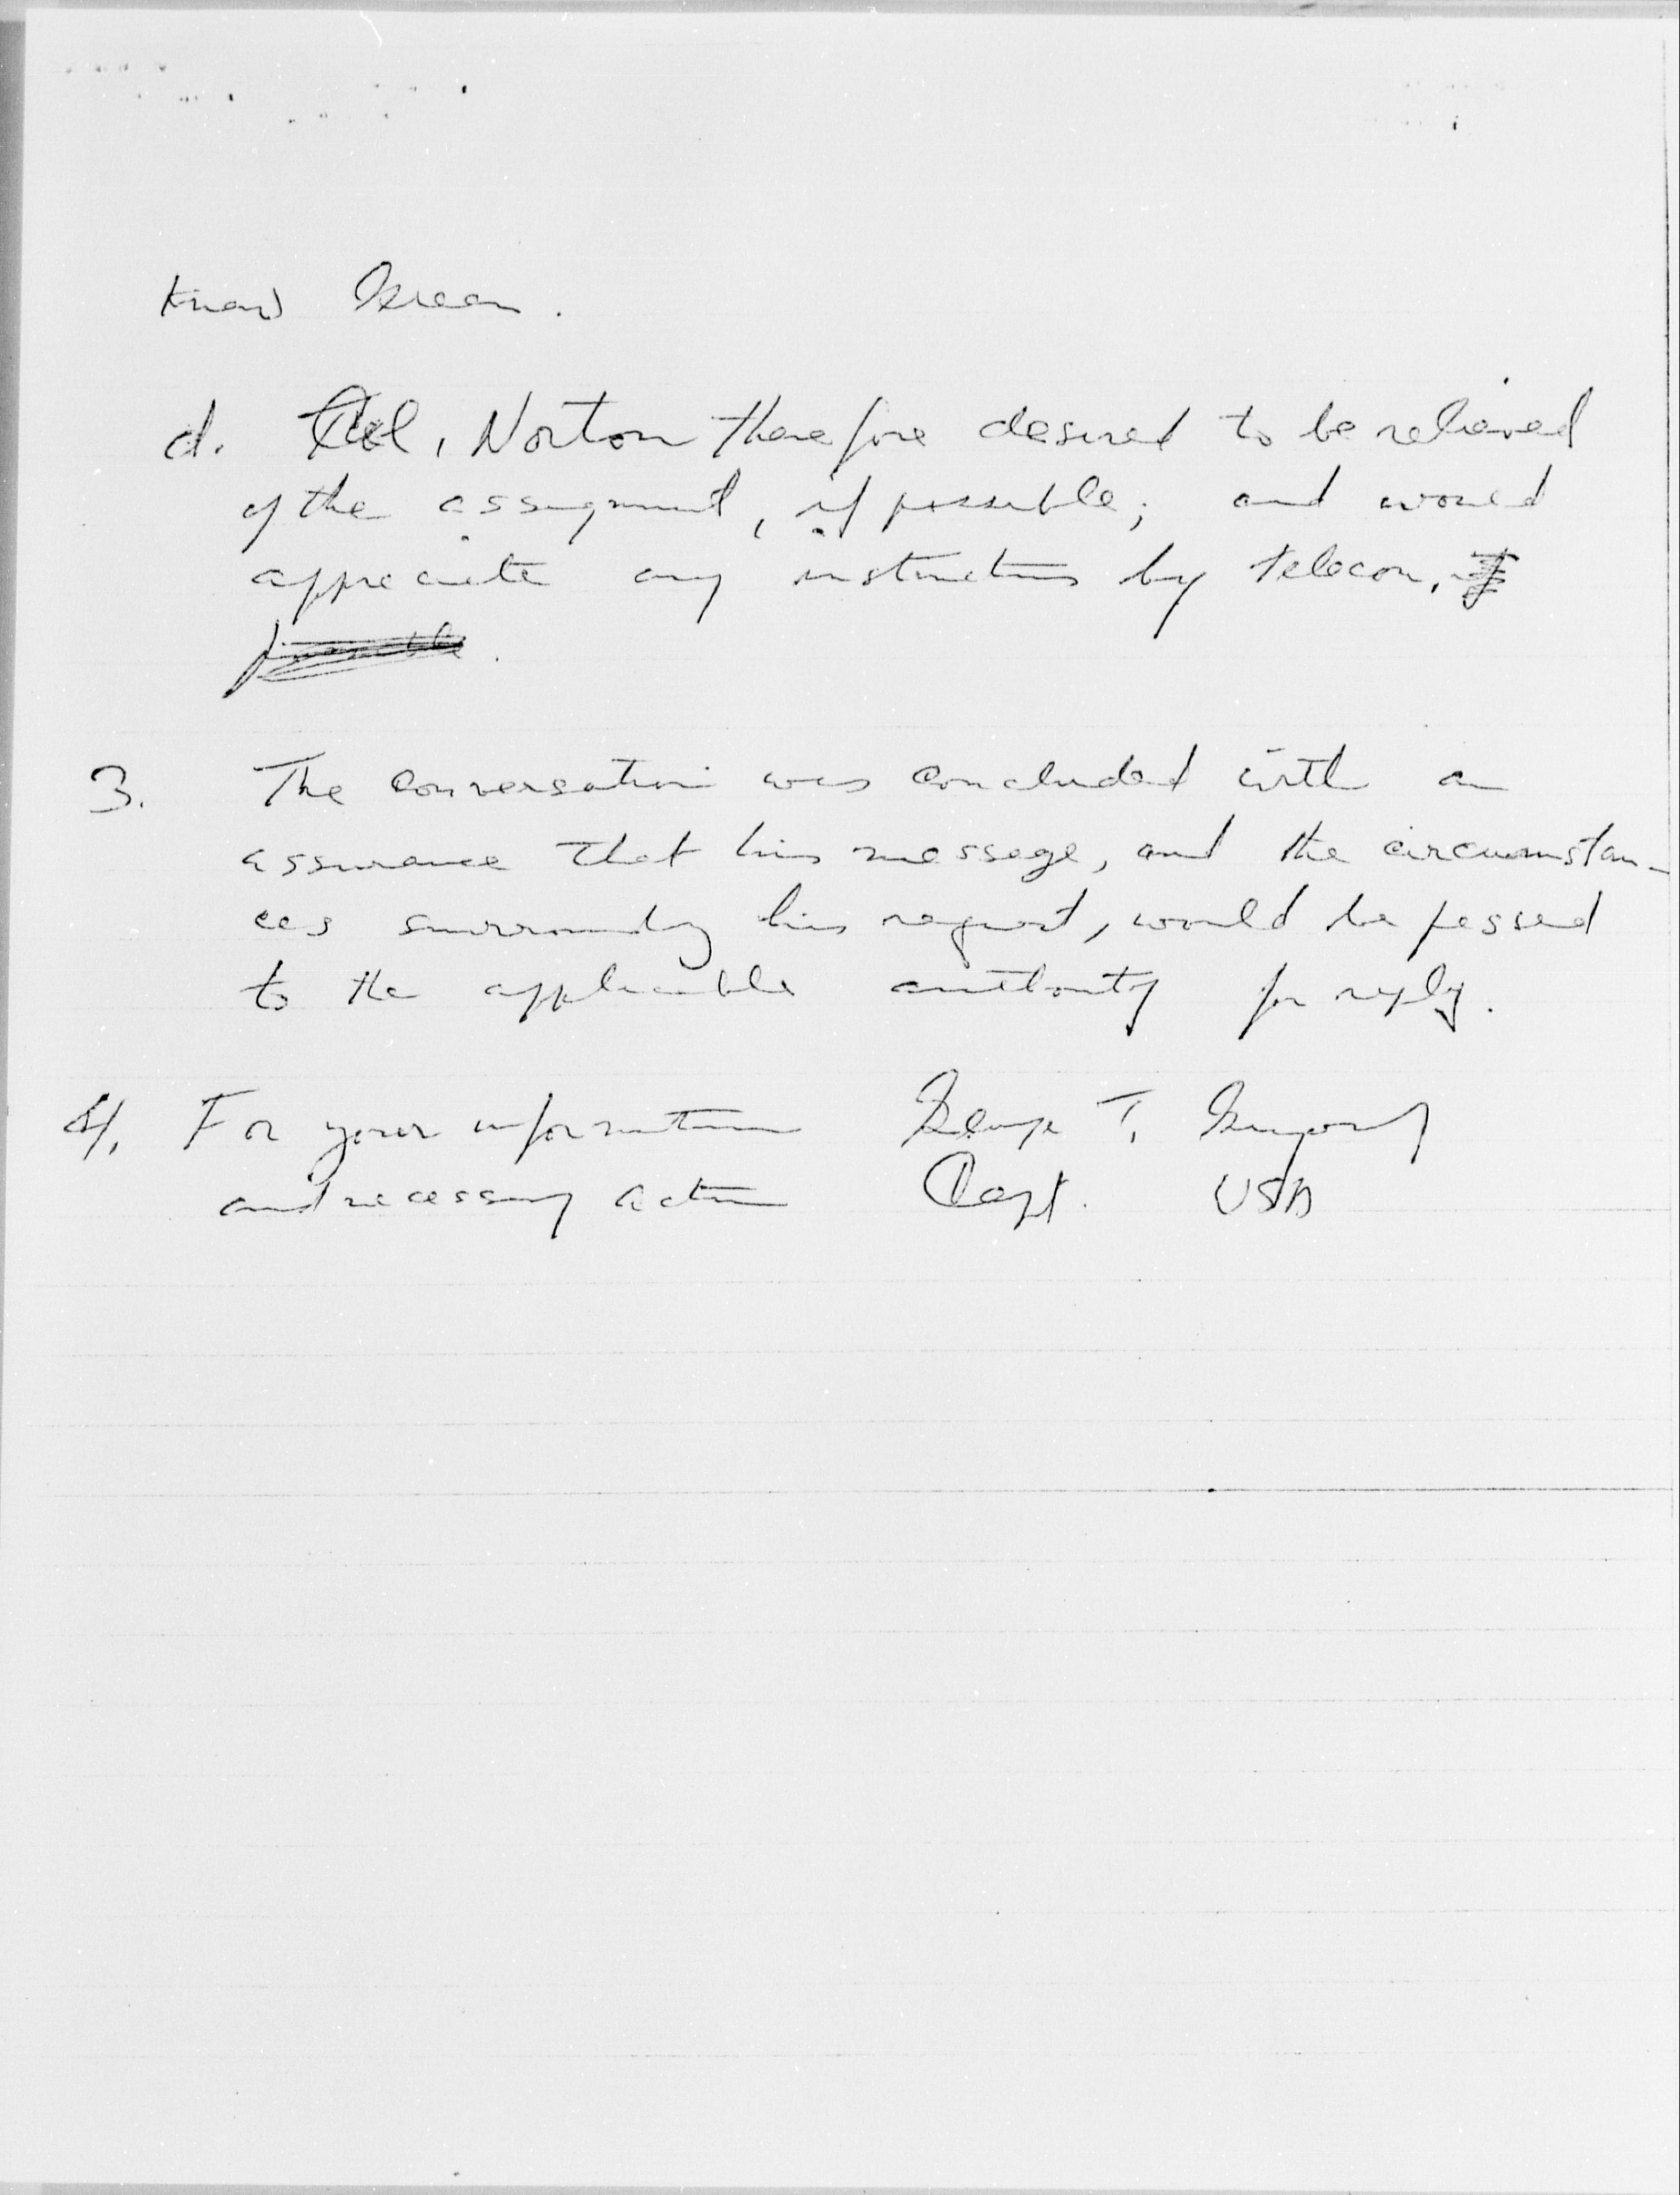 know Green.
d. Col. Norton therefore desired to be relieved
of the assignment, if possible; and would
appreciate any instructions by telecon, if
possible.
3. The conversation was concluded with an
assurance that his message, and the circumstan-
ces surrounding his request, would be passed
to the applicable authority for reply.
4. For your information George T.
and necessary action Capt. USA